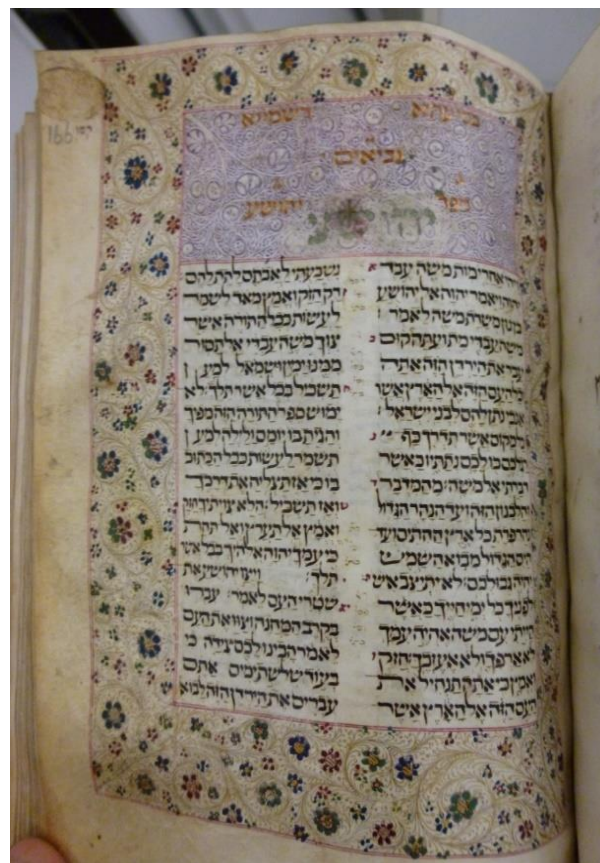 בסיעתא דשמיא
נביאים
ספר יהושע
יהושע
ויהי אחרי מות משה עבד
יהוה ויאמר יהוה אל יהושע
בן נון משרת משה לאמר
משה עבדי מת ועתה קום
עבר את הירדן הזה אתה
וכל העם הזה אל הארץ אשר
אנכי נתן להם לבני ישראל
כל מקום אשר תדרך כף
רגלכם בו לכם נתתיו כאשר
דברתי אל משה מהמדבר
והלבנון הזה ועד הנהר הגדול
נהר פרת כל ארץ החתים ועד
הים הגדול מבוא השמש
יהיה גבולכם לא יתיצב איש
לפניך כל ימי חייך כאשר
הייתי עם משה אהיה עמך
לא ארפך ולא אעזבך חזק
ואמץ כי אתה תנחיל את
העם הזה אל הארץ אשר
נשבעתי לאבתם לתת להם
רק חזק ואמץ מאד לשמר
לעשות ככל התורה אשר
צוך משה עבדי אל תסור
ממנו ימין ושמאל למען
תשכיל בכל אשר תלך לא
ימוש ספר התורה הזה מפיך
והגית בו יומם ולילה למען
תשמר לעשות ככל הכתוב
בו כי אז תצליח את דרכך
ואז תשכיל הלא צויתיך חזק
ואמץ אל תערץ ואל תחת
כי עמך יהוה אלהיך בכל אשר
תלך ויצו יהושע את
שטרי העם לאמר עברו
בקרב המחנה וצוו את העם
לאמר הכינו לכם צידה כי
בעוד שלשת ימים אתם
עברים את הירדן הזה לבוא